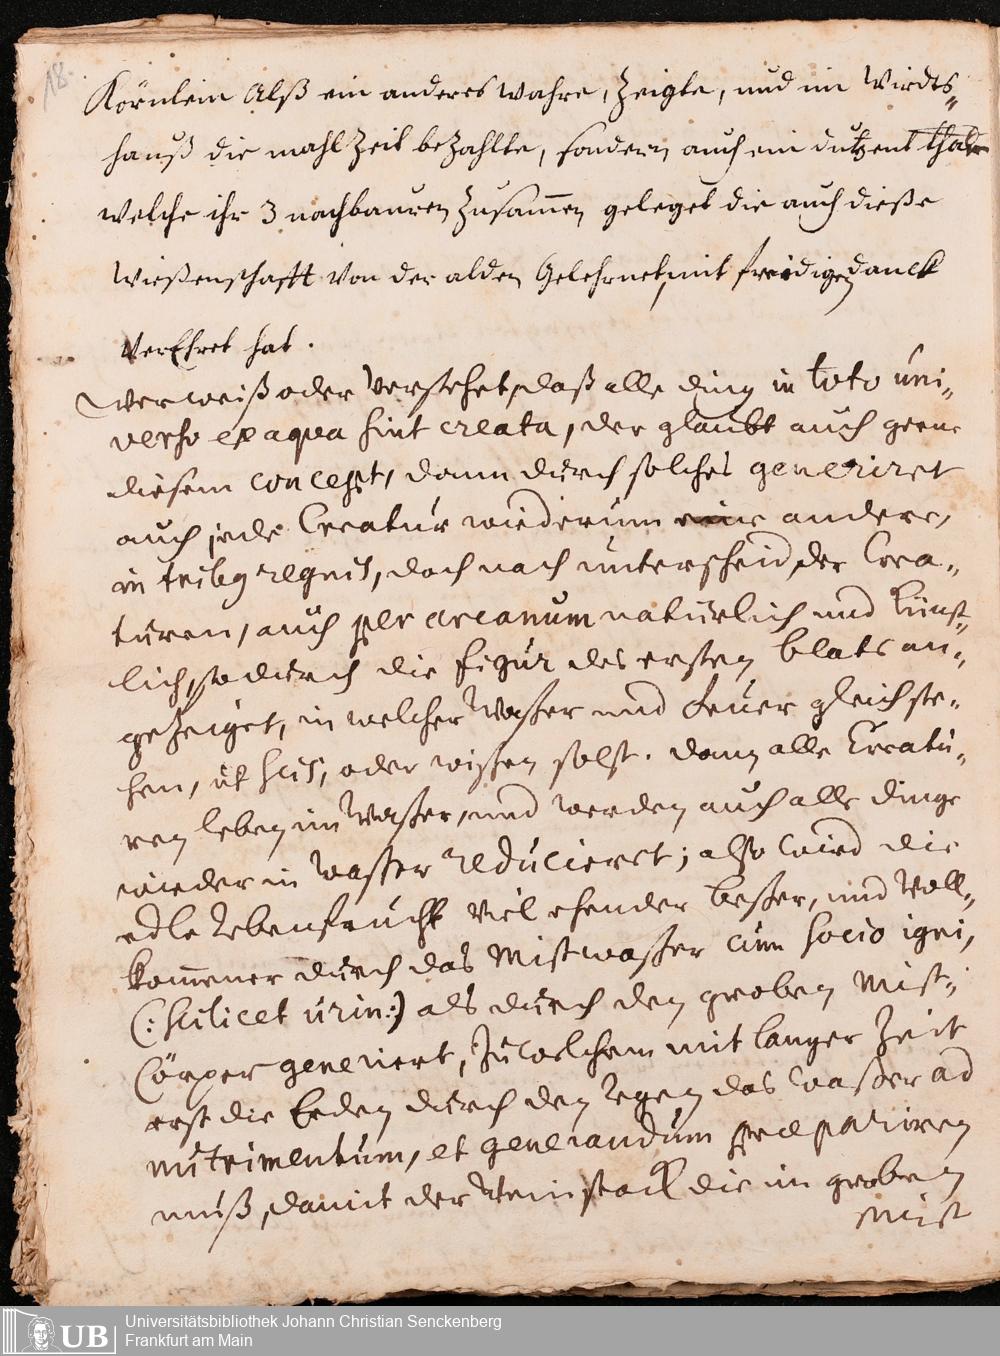 18.
Körnlein Alß ein anderes wahre, Zeigte, und im Wirdts„
hauß die mahl Zeit beZahlte, sondern auch ein dutzent thaler
welche ihr 3 nachbauren Zusam̄en geleget die auch dieße
Wießenschafft von der alden Gelehrnet, mit freidigen danck
VerEhret hat.
Wer weiß oder verstehet, daß alle ding in toto uni„
verso ex aqua sint creata, der glaubt auch gerne
diesem concept, dann durch solches generiret
auch jede Creatur wiederum eine andere,
in tribq regnis, doch nach unterscheid der Crea„
turen, auch per arcanum natürlich und künst„
lich, so durch die figur des ersten blats an„
geZeiget, in welcher Waßer und feuer gleich ste„
hen, ut scis, oder wißen solst. dann alle Creatu„
ren leben im Waßer, und werden auch alle dinge
wieder in Waßer reducieret; also wird die
edle Rebenfrucht viel ehender beßer, und Voll„
kom̄ener durch das Mistwaßer cum socio igni,
(: scilicet urin:) als durch den groben Mist„
Cörper generiert, Zu welchem mit langer Zeit
erst die Erden durch den regen das waßer ad
nutrimentum, et generandum præpariren
muß, damit der Weinstock die im groben
Mist
Universitätsbibliothek Johann Christian Senckenberg
Frankfurt am Main
UB